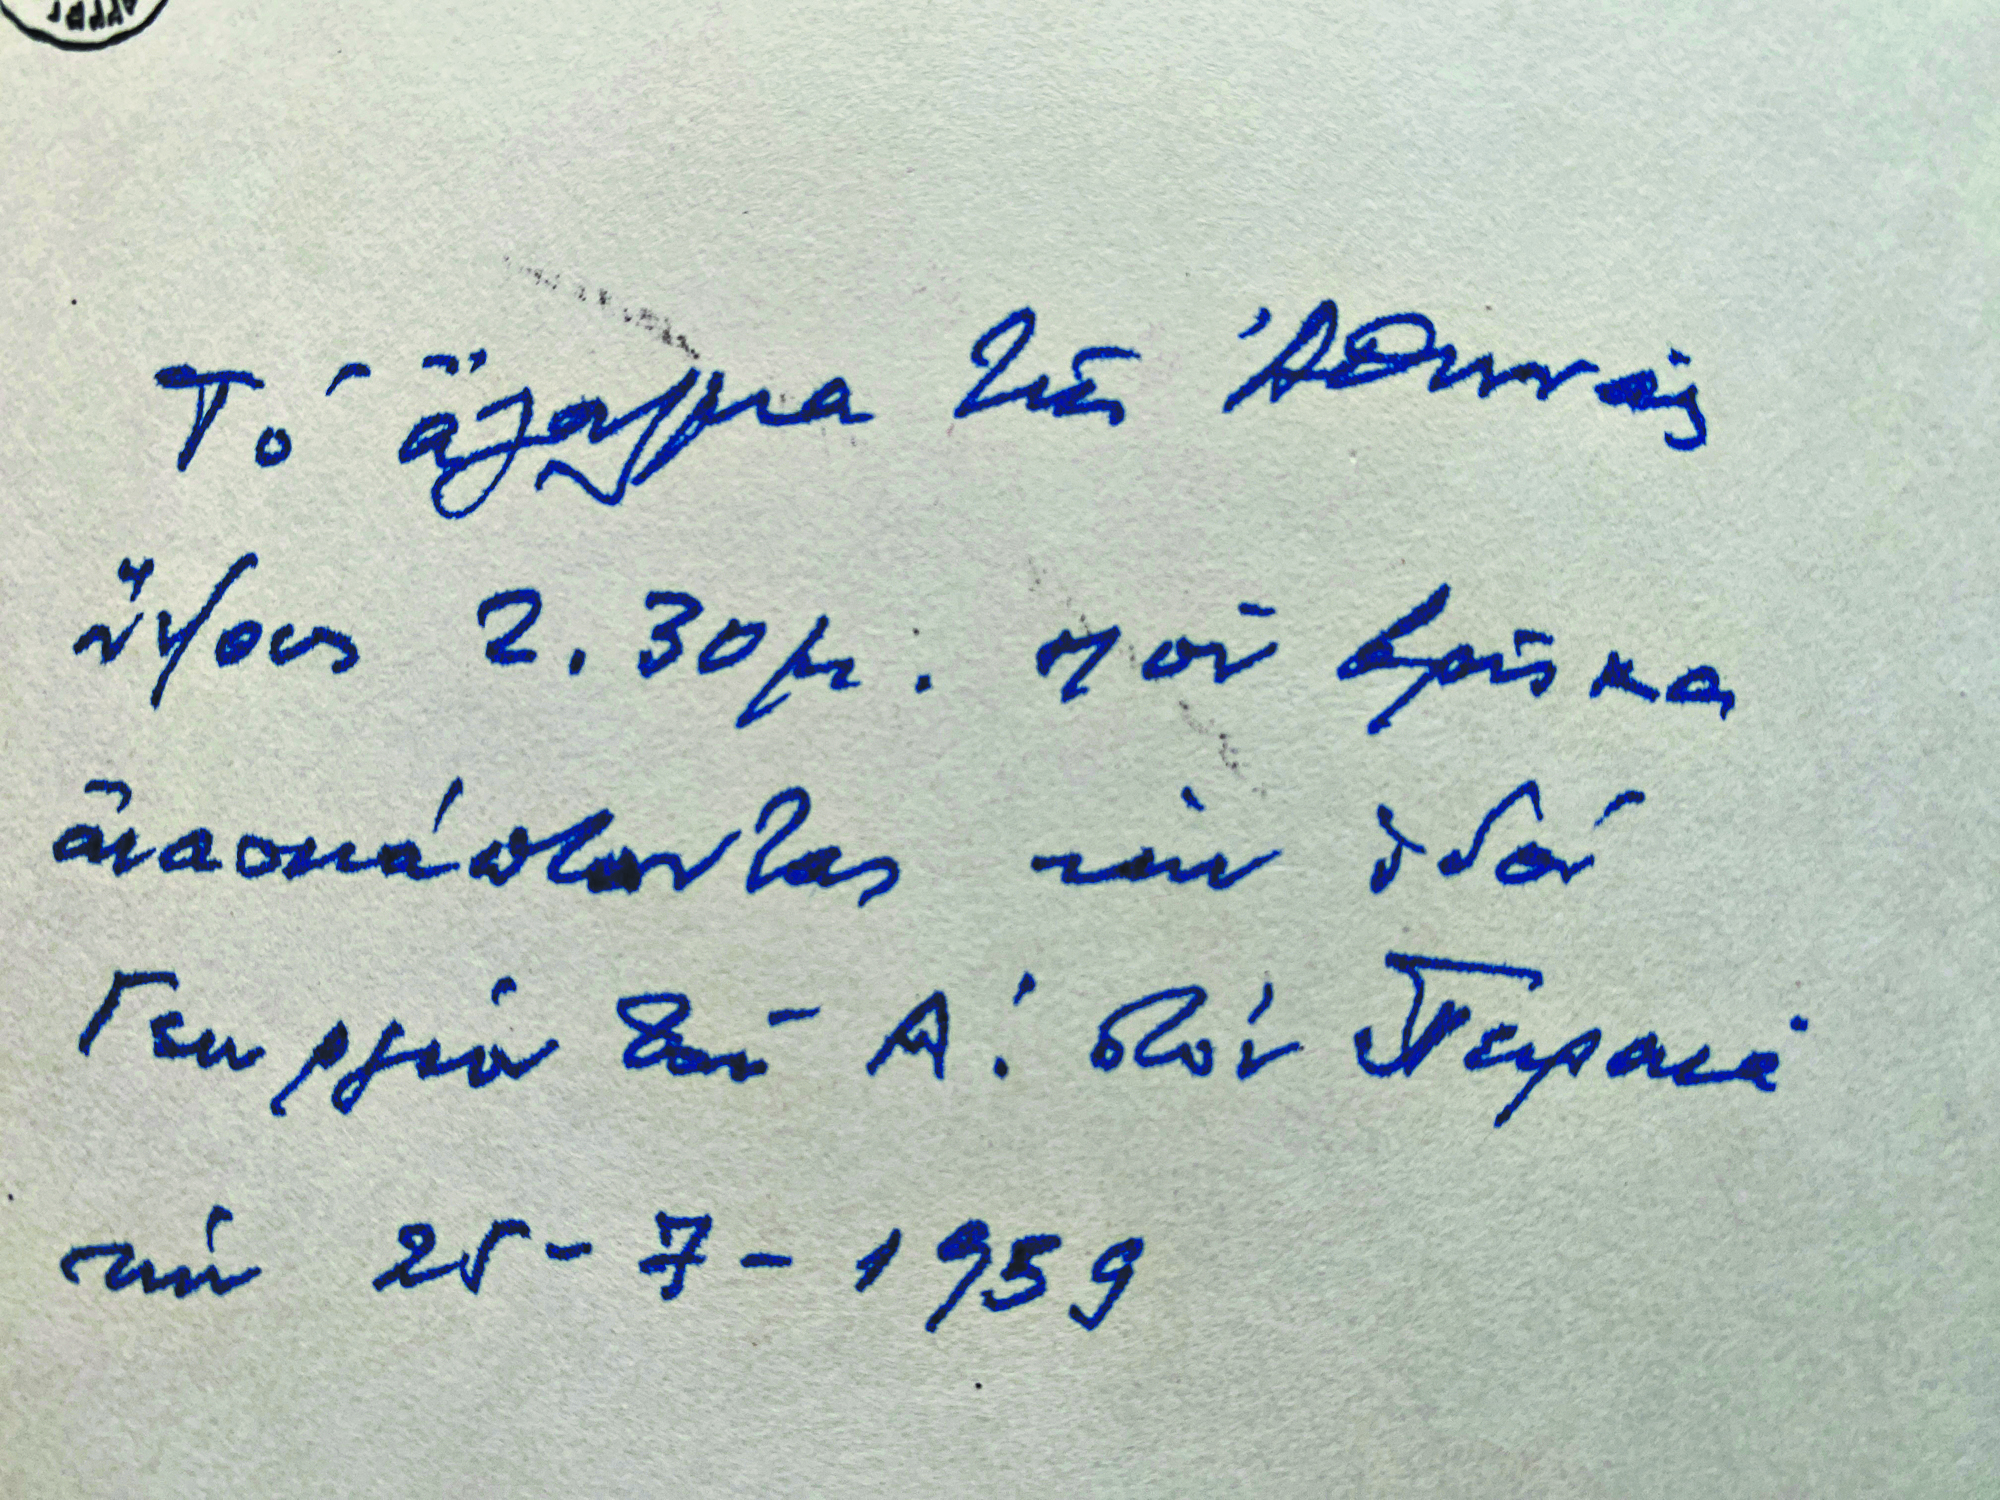 Τό ἄγαλμα τῆς Ἀθηνᾶς
ὕψους 2.30μ. πού βρῆκα
ἀνασκάπτοντας τήν ὁδόν
Γεωργίου τοῦ Α! στόν Πειραιά
τήν 25-7-1959